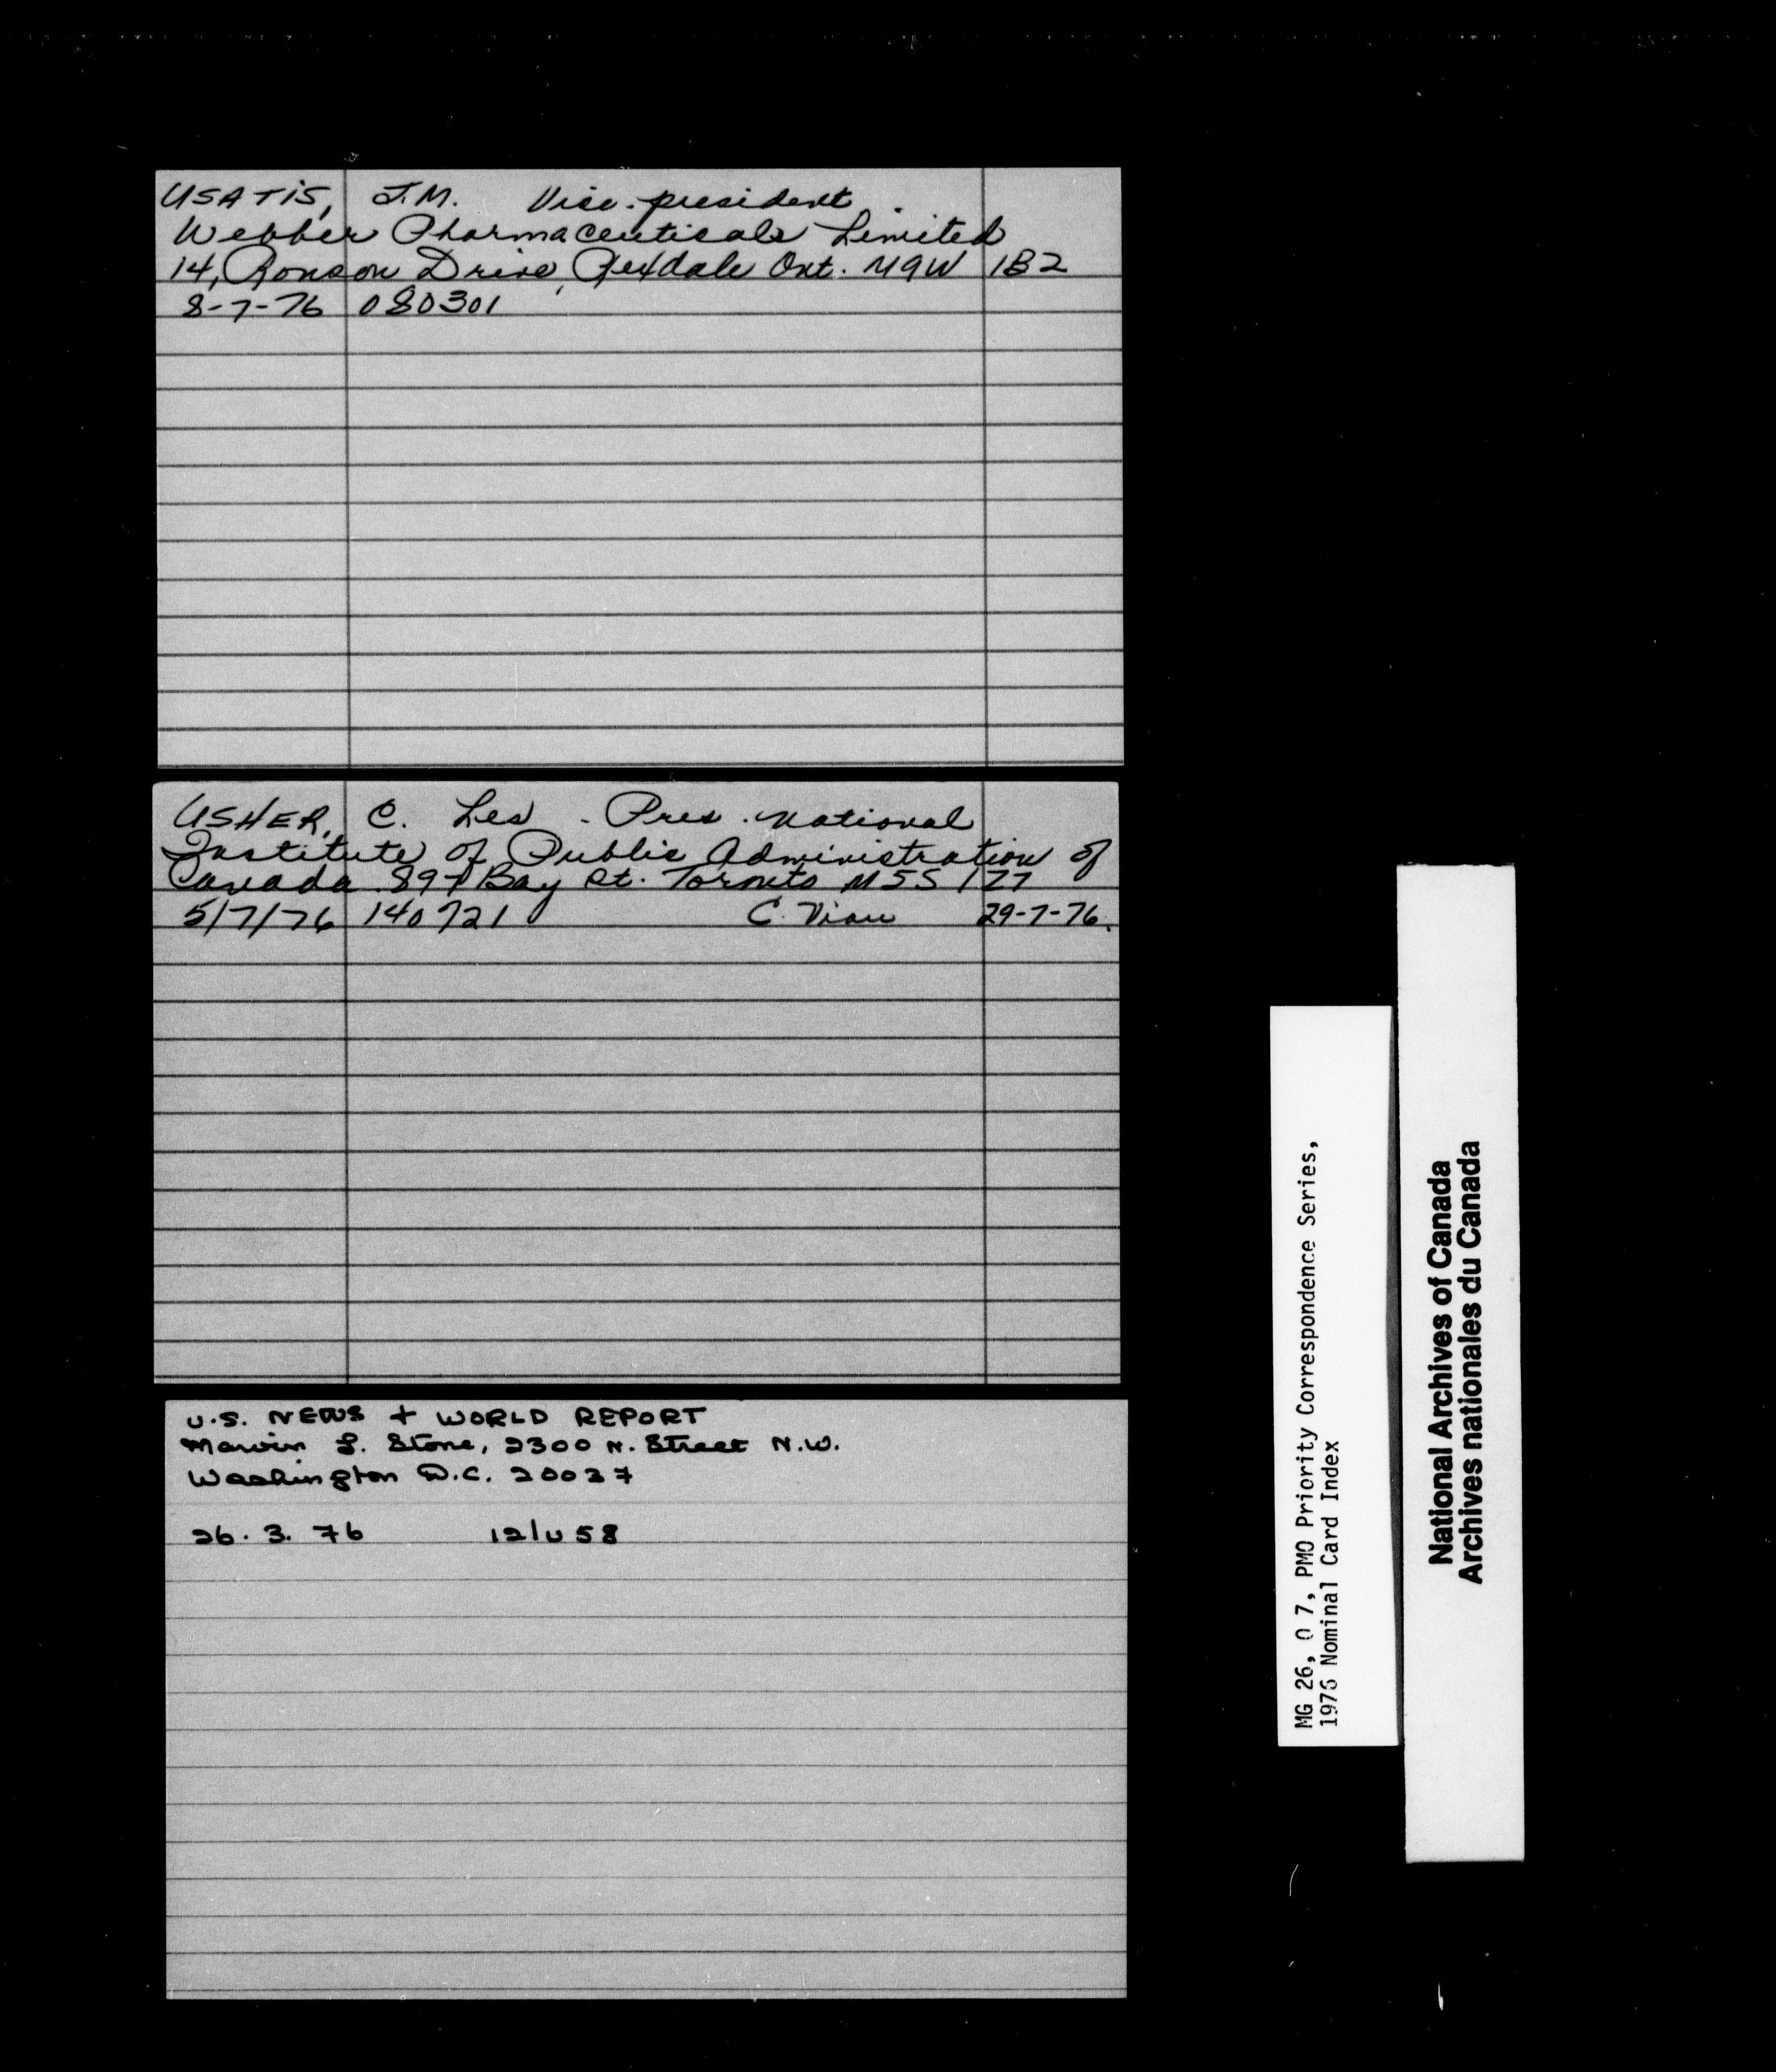 USATIS, J.M. Vice-president
Webber Pharmaceuticals Limited
14, Ronson Drive, Rexdale Ont. M9W 1B2
8-7-76 080301
USHER, C. Les - Pres. National
Institute of Public Administration of
Canada 897 Bay St. Toronto M5S 1Z7
5/7/76 140721 C. Viau 29-7-76.
U.S. NEWS + WORLD REPORT
Marvin L. Stone, 2300 N. Street N.W.
Washington D.C. 20037
26.3.76 12/U58
MG 26, O 7, PMO Priority Correspondence Series,
1976 Nominal Card Index
National Archives of Canada
Archives nationales du Canada